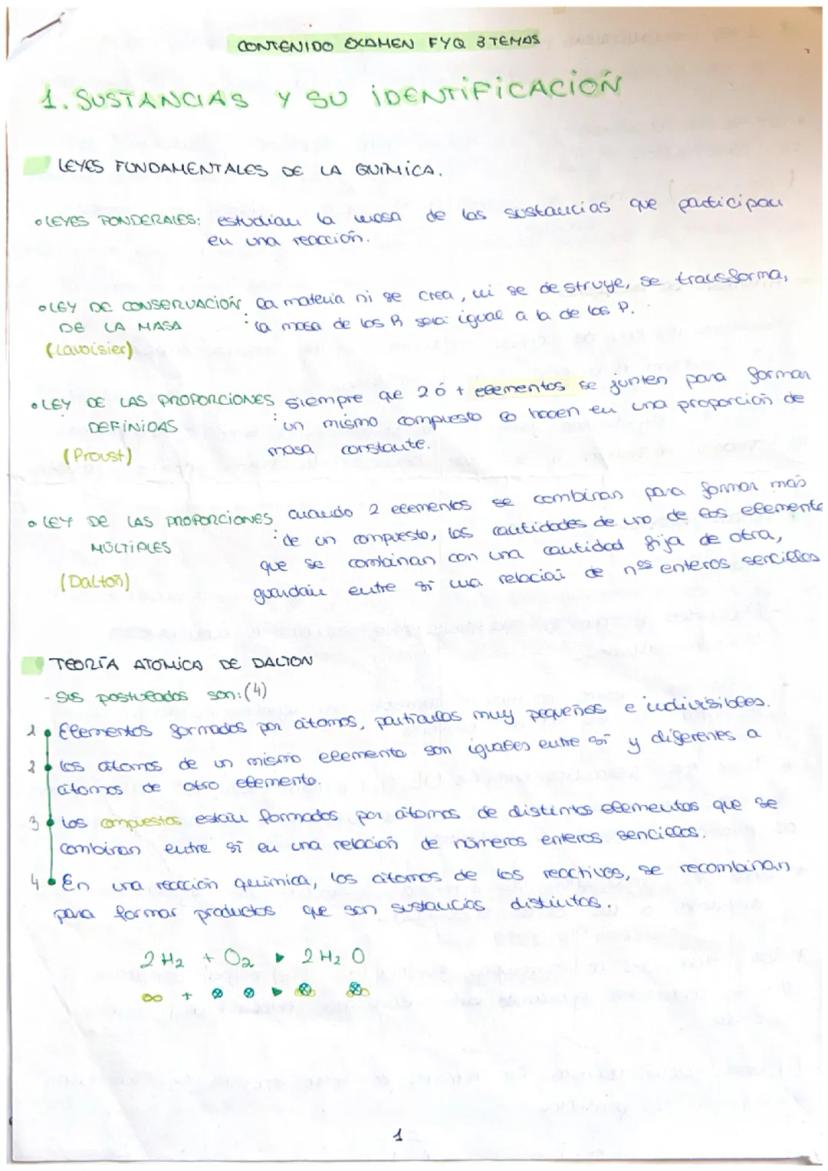 CONTENIDO EXAMEN FYQ 3 TEMAS
1. SUSTANCIAS Y SU IDENTIFICACIÓN
LEYES FUNDAMENTALES DE LA QUÍMICA.
• LEYES PONDERALES: estudian la masa de las sustancias que participan
en una reacción.
• LEY DE CONSERVACIÓN la materia ni se crea, ni se destruye, se transforma,
DE LA MASA : la masa de los R será igual a la de los P.
(Lavoisier)
• LEY DE LAS PROPORCIONES siempre que 2 ó + elementos se junten para formar
DEFINIDAS : un mismo compuesto lo hacen en una proporción de
(Proust) masa constante.
• LEY DE LAS PROPORCIONES cuando 2 elementos se combinan para formar más
MÚLTIPLES : de un compuesto, las cantidades de uno de los elemento
que se combinan con una cantidad fija de otra,
(Dalton) guardan entre sí una relación de nos enteros sencillos
TEORÍA ATÓMICA DE DALTON
- Sus postulados son: (4)
1 • Elementos formados por átomos, partículas muy pequeñas e indivisibles.
2 • Los átomos de un mismo elemento son iguales entre sí y diferenes a
átomos de otro elemento.
3 • Los compuestos están formados por átomos de distintos elementos que se
combinan entre sí en una relación de números enteros sencillos.
4 • En una reacción química, los átomos de los reactivos, se recombinan
para formar productos que son sustancias distintas.
2 H2 + O2 ▸ 2 H2 O
+ ▸
1